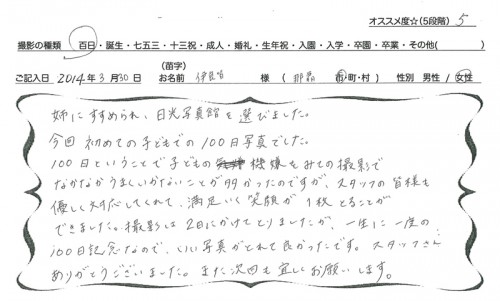 オススメ度☆(5段階) 5
撮影の種類 百日・誕生・七五三・十三祝・成人・婚礼・生年祝・入園・入学・卒園・卒業・その他( )
(苗字)
ご記入日 2014年3月30日 お名前 伊良皆 様 ( 那覇 市・町・村 ) 性別 男性 / 女性
姉にすすめられ、日光写真館を選びました。
今回初めての子どもでの100日写真でした。
100日ということで子どもの機嫌をみての撮影で
なかなかうまくいかないことが多かったのですが、スタッフの皆様も
優しく対応してくれて、満足いく笑顔が1枚とることが
できました。撮影は2日にかけてとりましたが、一生に一度の
100日記念なので、いい写真がとれて良かったです。スタッフさん
ありがとうございました。また次回も宜しくお願いします。